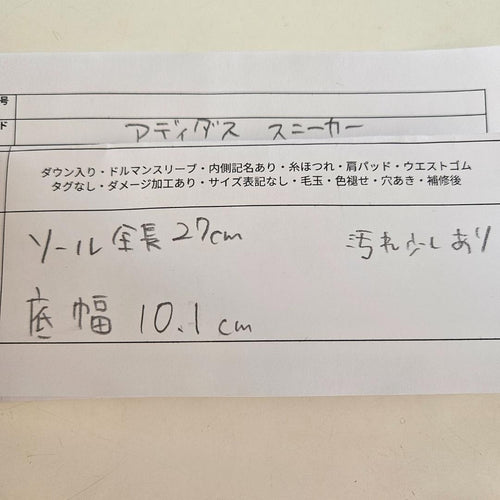 号
ド アディダス スニーカー
ダウン入り・ドルマンスリーブ・内側記名あり・糸ほつれ・肩パッド・ウエストゴム
タグなし・ダメージ加工あり・サイズ表記なし・毛玉・色褪せ・穴あき・補修後
ソール全長27cm 汚れ少しあり
底幅 10.1cm